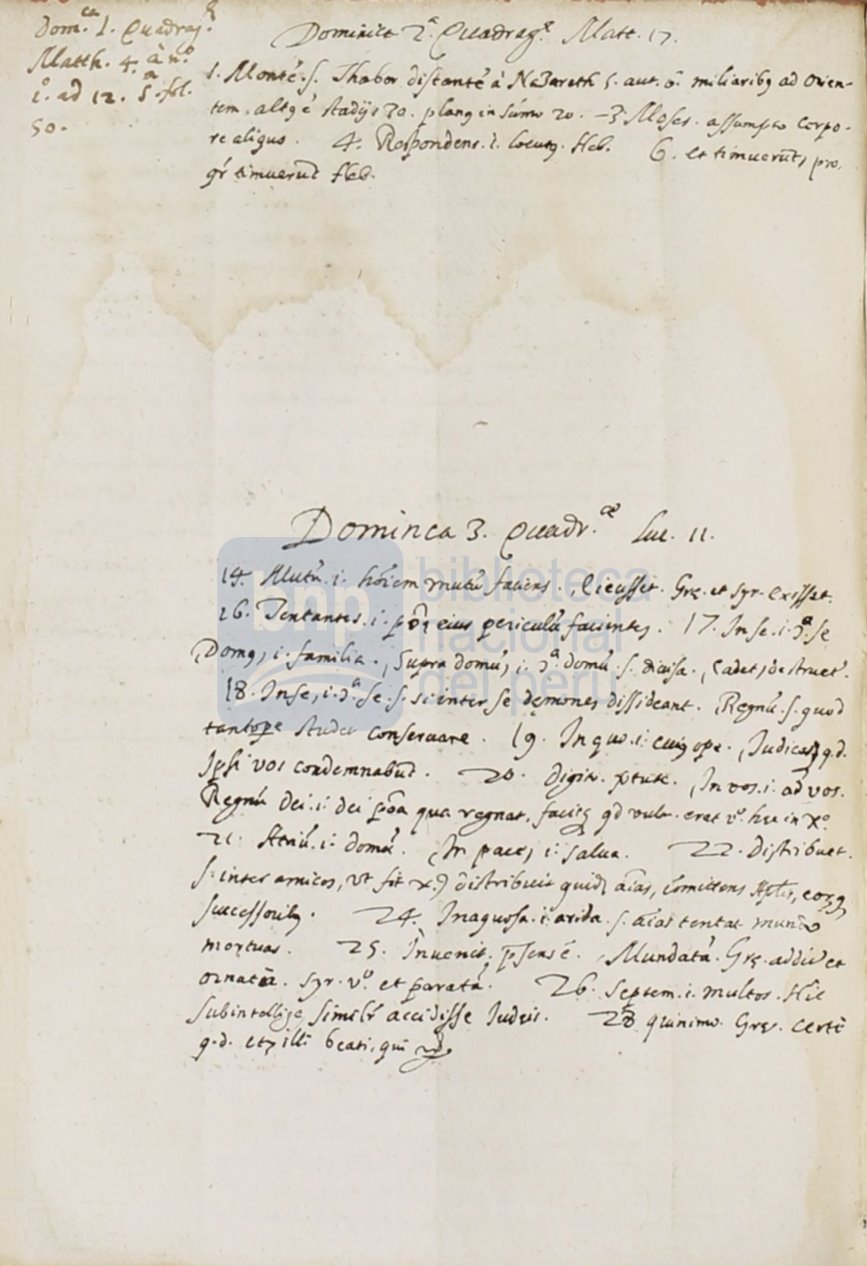 Dom.ca 1. Quadrag.e
Matth. 4. à n.o
1.o ad 12. s.a fol.
50.
Dominica 2.a Quadrag.e Matt. 17.
1. Monté. s. Thabor distanté à Nazareth 5. aut. 6. miliariby ad Orien-
tem. altg é stadijs 30. plang in súmo 20. – 3 Moses. assumpto corpo-
re aliquo. 4. Respondens. i. locutg. Heb. 6. et timuerūt, pro,
gr timuerūt Heb.
Dominca 3. Quadr.ae Luc. 11.
14. Mutū. i. hoíem mutū faciens, Eiecisset. Grę. et Syr. Exisset.
16. Tentantes. i. eius periculū facientes. 17. In se. i. se
Domg, i. familia., Supra domū, i. domū. s. diuisa., Cadet, destruet.
18. In se, i. se. s. si inter se dęmones dissideant. Regnū. s. quod
tantope studet conseruare. 19. In quo. i. cuig ope., Iudices q.d.
Ipsi vos condemnabūt. 20. Digito. , In vos. i. ad vos.
Regnū Dei. i. Dei qua regnat, facitq qd vult. erat v.o hic in x.o
21. Atriū. i. domū. , In pace, i. salua. 22. Distribuet.
s. inter amicos, vt fit distribuit quidē aīas, cōmittens Aplis, eorq
successoribg. 24. Inaquosa. i. arida. s. aīas tentat
mortuas. 25. Inuenit. , Mundatā. Grę. addit et
ornatā. Syr. v.o et paratā. 26. Septem. i. multos. Hic
subintellige simile accidisse Iudęis. 28 quinimo. Grę. certè
q.d. etg illi beati, qui
biblioteca
nacional
del perú
bnp